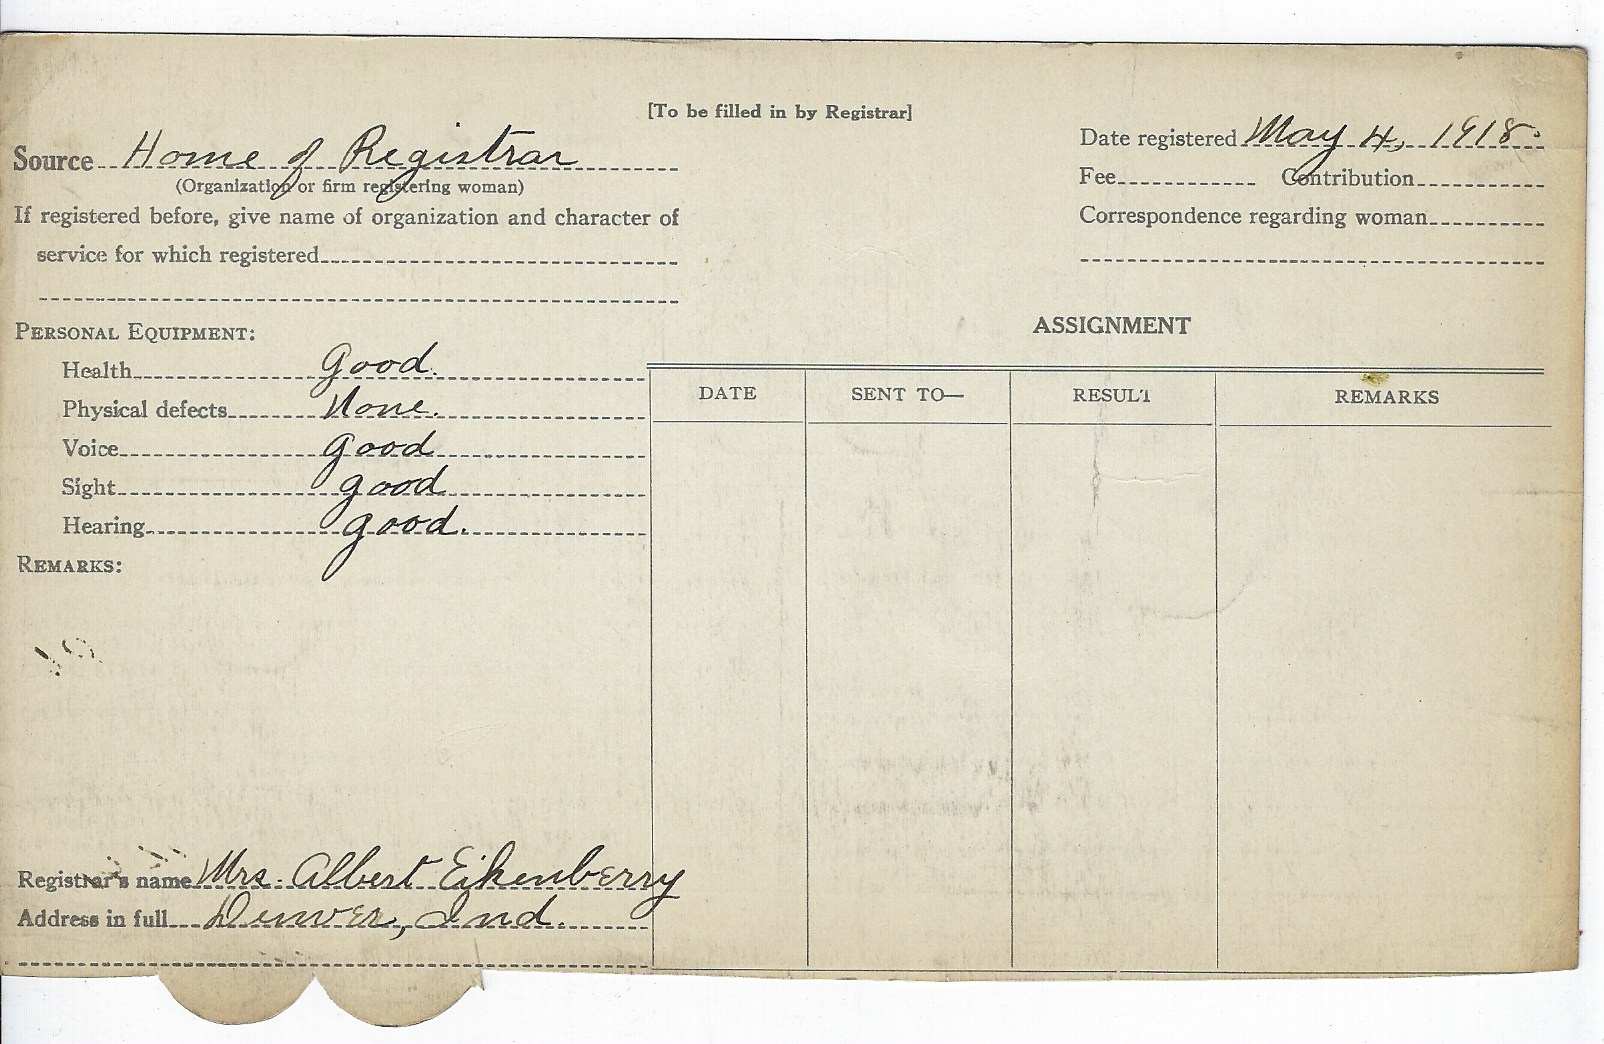 [To be filled in by Registrar]
Source Home of Registrar
(Organization or firm registering woman)
If registered before, give name of organization and character of
service for which registered
Date registered May 4, 1918.
Fee Contribution
Correspondence regarding woman
PERSONAL EQUIPMENT:
Health Good.
Physical defects None.
Voice Good
Sight good
Hearing good.
REMARKS:
Registrar's name Mrs. Albert Eikenberry
Address in full Denver, Ind.
ASSIGNMENT
DATE SENT TO— RESULT REMARKS